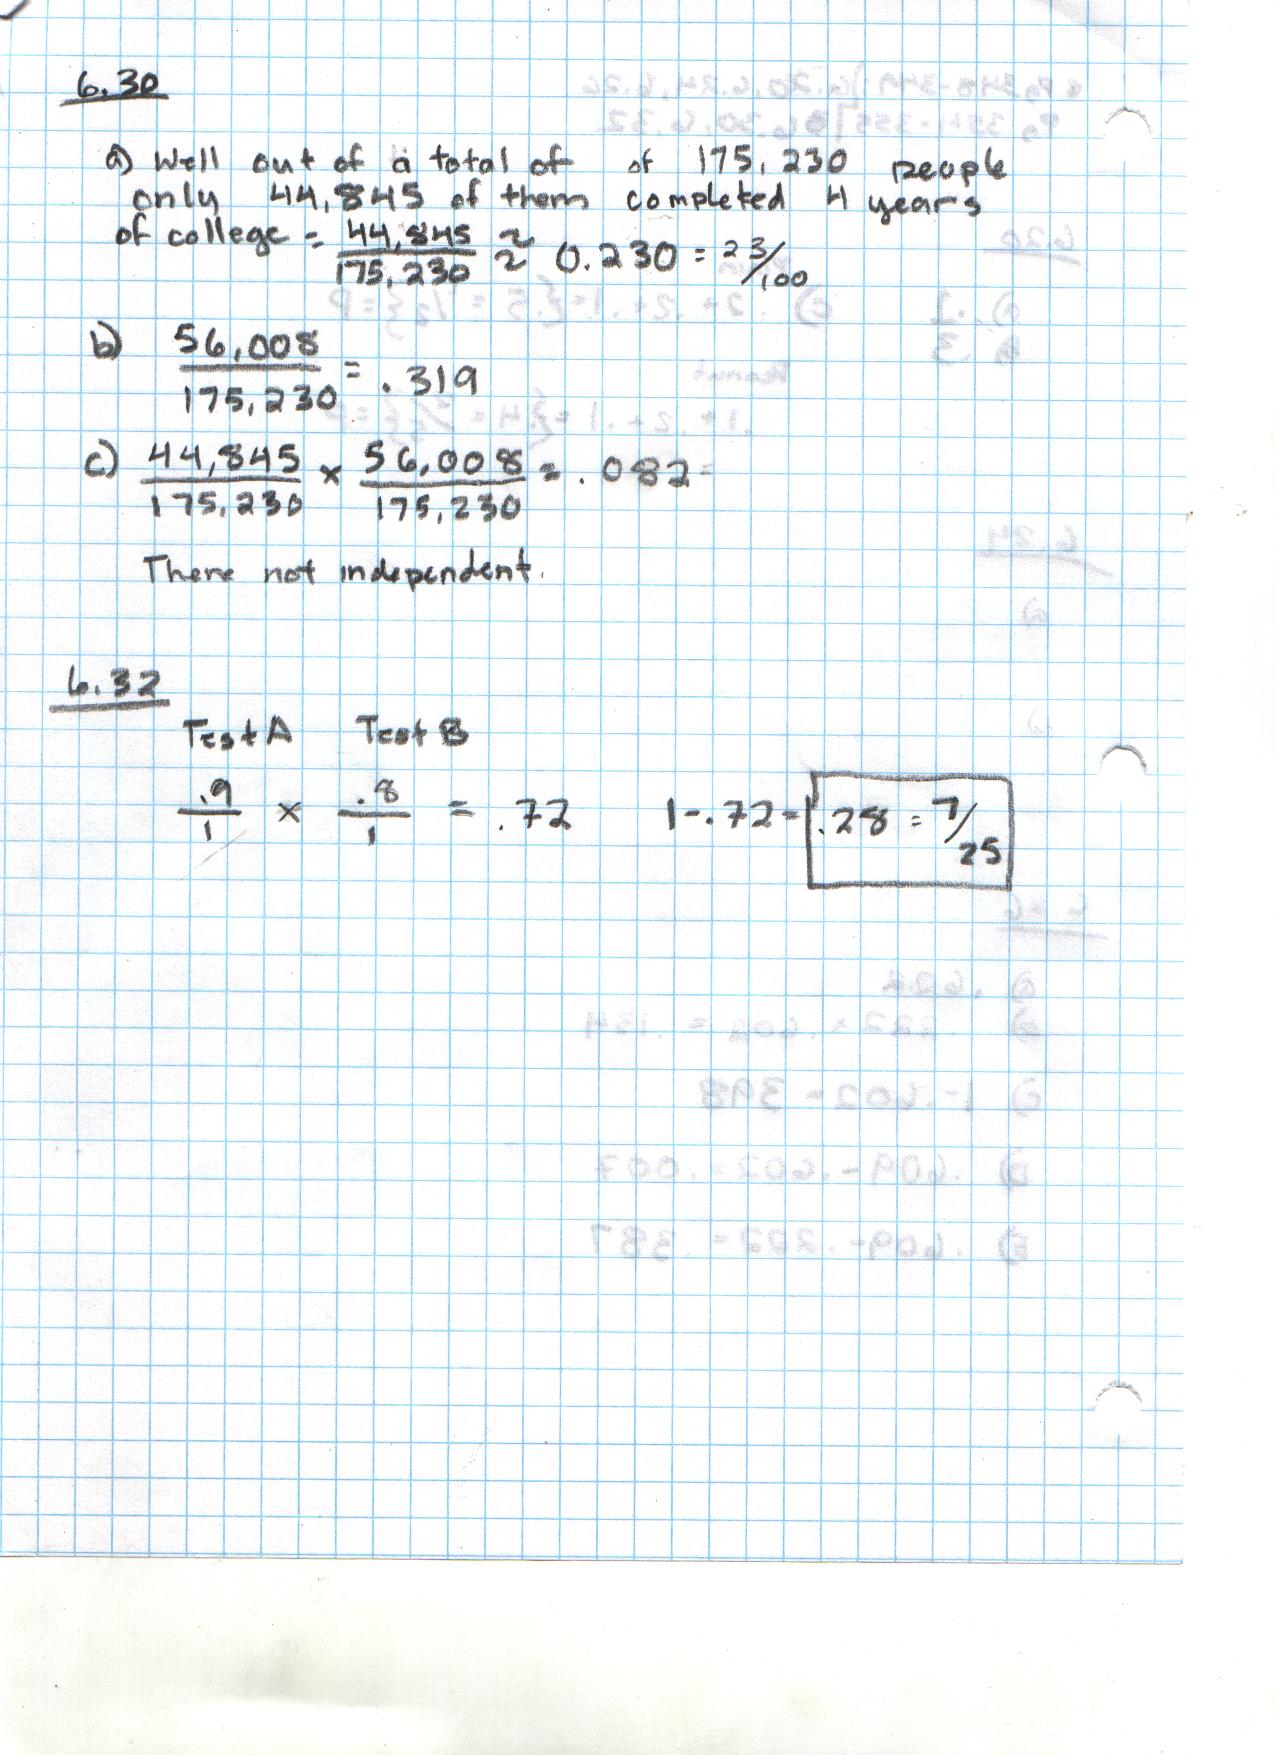 6.30
a) Well out of a total of of 175,230 people
only 44,845 of them completed 4 years
of college = 44,845/175,230 ≈ 0.230 = 23/100
b) 56,008/175,230 = .319
c) 44,845/175,230 × 56,008/175,230 = .082 =
There not independent.
6.32
Test A Test B
.9/1 × .8/1 = .72 1-.72= .28 = 7/25